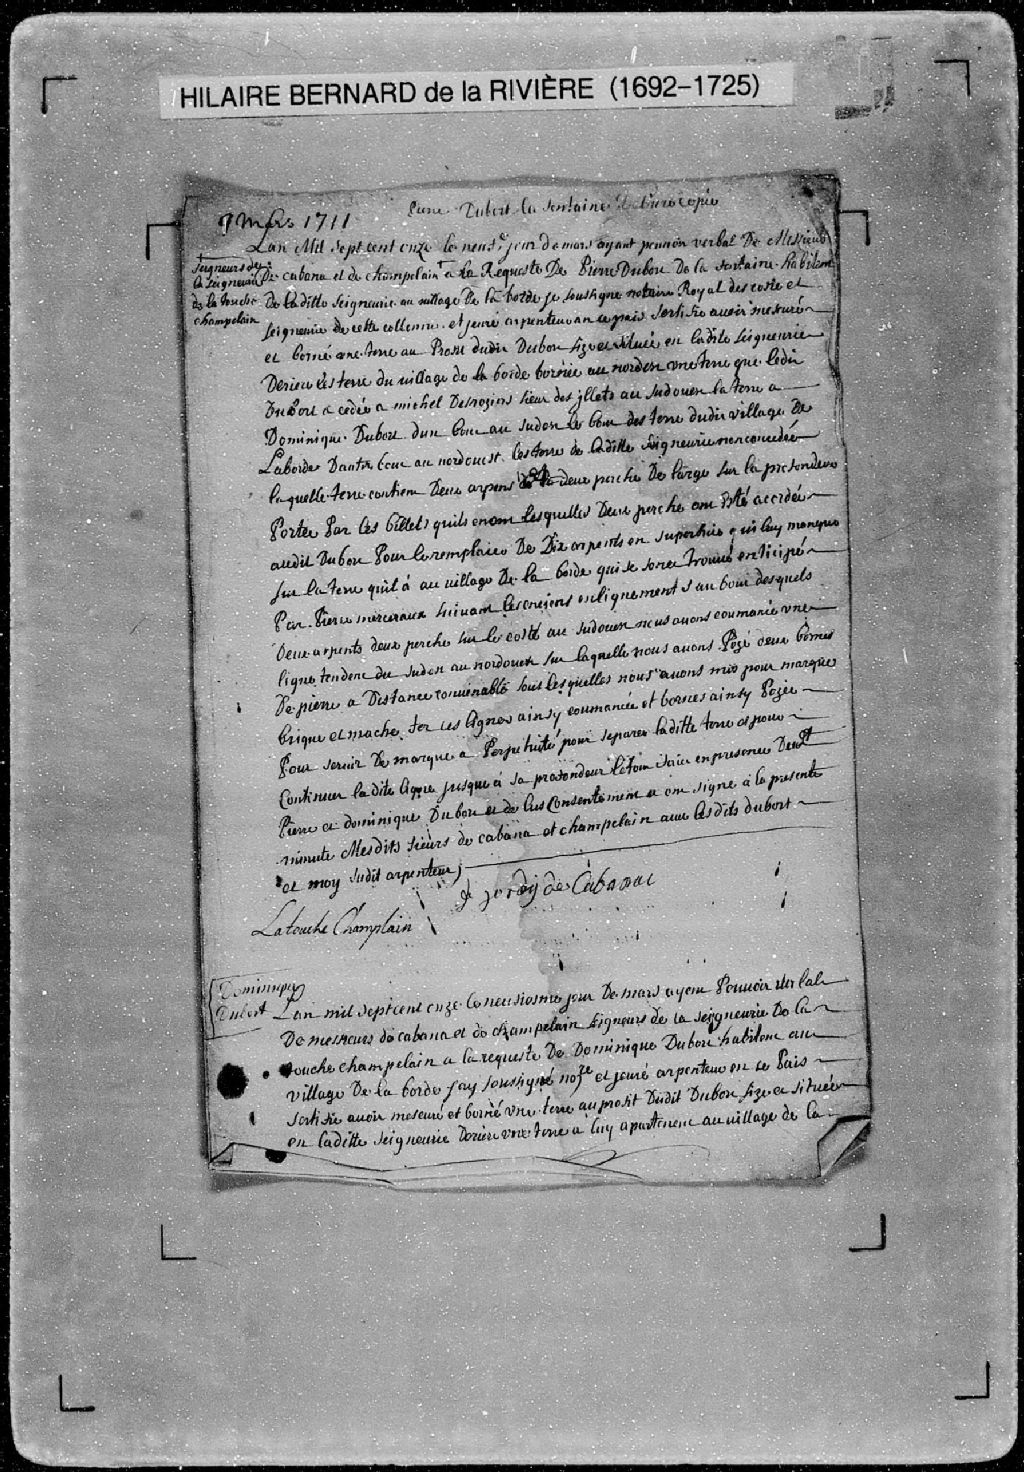 HILAIRE BERNARD de la RIVIÈRE (1692–1725)
9 Mars 1711
Pierre Dubort La fontaine
Lan Mil Sept cent onze le neufe jour de mars ayant pouvoir verbal De Messieurs
Seigneurs de
la Seigneurie
de la touche
champelain
De cabana et de champelain a La Requeste De Pierre Dubort De la fontaine habitant
De laditte seigneurie au village De la borde je soussigne notaire Royal des coste et
seigneurie de cette collonnie et juré arpenteur en ce pais certifie avoir mesuré
et borné une terre au Profit dudit Dubort size et située en ladite seigneurie
Deriere les terre du village de la borde bornée au nordest une terre que ledit
Dubort a cedée a michel Desrosiers sieur des jllets au sudouest la terre a
Dominique Dubort dun bout au sudest le bout des terre dudit village De
Laborde Dautre bout au nordouest les terre de laditte seigneurie non concedée
laquelle terre contien Deux arpens deux perche De large sur la profondeur
Porter Par les billets quils en ont lesquelles Deux perche ont esté accordée
audit Dubort Pour le remplaicer De Dix arpents en superficie qui luy manque
sur la terre quil á au village De la borde qui se sont trouvé enticipé
Par Pierre mercereaux suivant les enciens enlignements au bout desquels
Deux arpents deux perche sur le costé au sudouest nous avons coumancé une
ligne tendente du sudest au nordouest sur laquelle nous avons Pozé deux bornes
De pierre a Distance convenable sous lesquelles nous avons mis pour marque
brique et mache fer ces lignes ainsy coumancée et bornes ainsy Pozée
Pour servir De marque a Perpetuité pour separer laditte terre et pour
Continuer ladite ligne jusque á sa profondeur le tout faict en presence Desdt
Pierre et dominique Dubort et de leur Consentement et ont signé á la presente
minute Mesdits sieurs de cabana et champelain avec lesdits dubort
et moy sudit arpenteur
de Cabanac
Latouche Champlain
Dominique
Dubort
Lan mil sept cent onze le neufiesme jour De mars ayent Pouvoir verbale
De messieurs de cabana et de champelain seigneurs de la seigneurie De la
touche champelain a la requeste De Dominique Dubort habitent au
village De la borde jay soussigné nore et juré arpenteur en ce Pais
certifie avoir mesuré et borné une terre au profit Dudit Dubort size et située
en laditte seigneurie Deriere une terre a luy apartenent au village de la